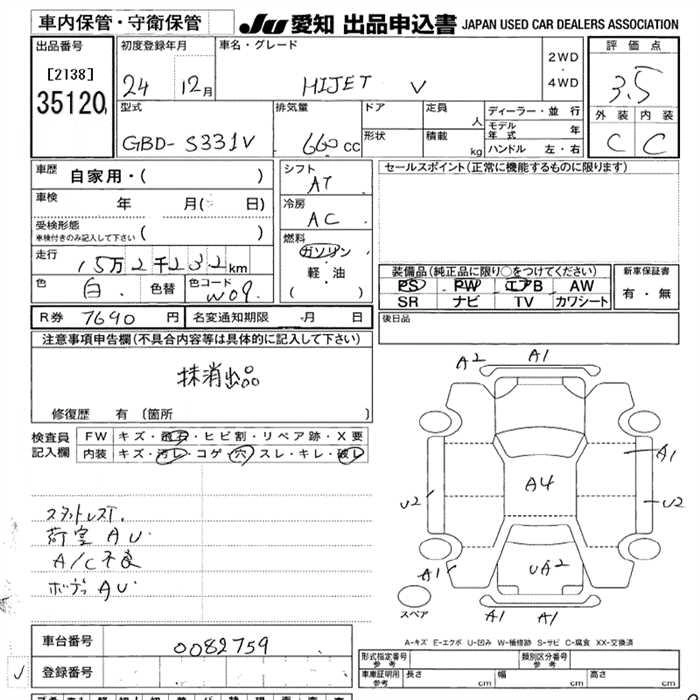 車内保管・守衛保管
JU 愛知 出品申込書 JAPAN USED CAR DEALERS ASSOCIATION
出品番号
[2138]
35120
初度登録年月
24 12月
車名・グレード
HIJET V
2WD
・
4WD
評価点
3.5
外装 内装
C C
型式
GBD-S331V
排気量
660cc
ドア
形状
定員
人
積載
kg
ディーラー・並行
モデル年式 年
ハンドル 左・右
車歴
自家用・( )
車検
年 月( 日)
受検形態
車検付きのみ記入して下さい ( )
走行
15万2千232km
色
白
色替
色コード
W09
シフト
AT
冷房
AC
燃料
ガソリン
軽・油
( )
セールスポイント(正常に機能するものに限ります)
装備品(純正品に限り○をつけてください)
PS PW エアB AW
SR ナビ TV カワシート
新車保証書
有・無
R券 7690円 名変通知期限 月 日
後日品
注意事項申告欄(不具合内容等は具体的に記入して下さい)
抹消出品
修復歴 有 〔箇所 〕
検査員記入欄
FW キズ・飛石・ヒビ割・リペア跡・X要
内装 キズ・汚レ・コゲ・穴・スレ・キレ・破レ
荷室 AU
A/C不良
ボディ AU
A2 A1
A1
A4
U2 U2
UA2
A1
A1 A1
スペア
cm cm
cm cm
A-キズ E-エクボ U-凹み W-補修跡 S-サビ C-腐食 XX-交換済
車台番号
0082759
登録番号
型式指定番号
参考
類別区分番号
参考
車庫証明用
参考
長さ cm 幅 cm 高さ cm